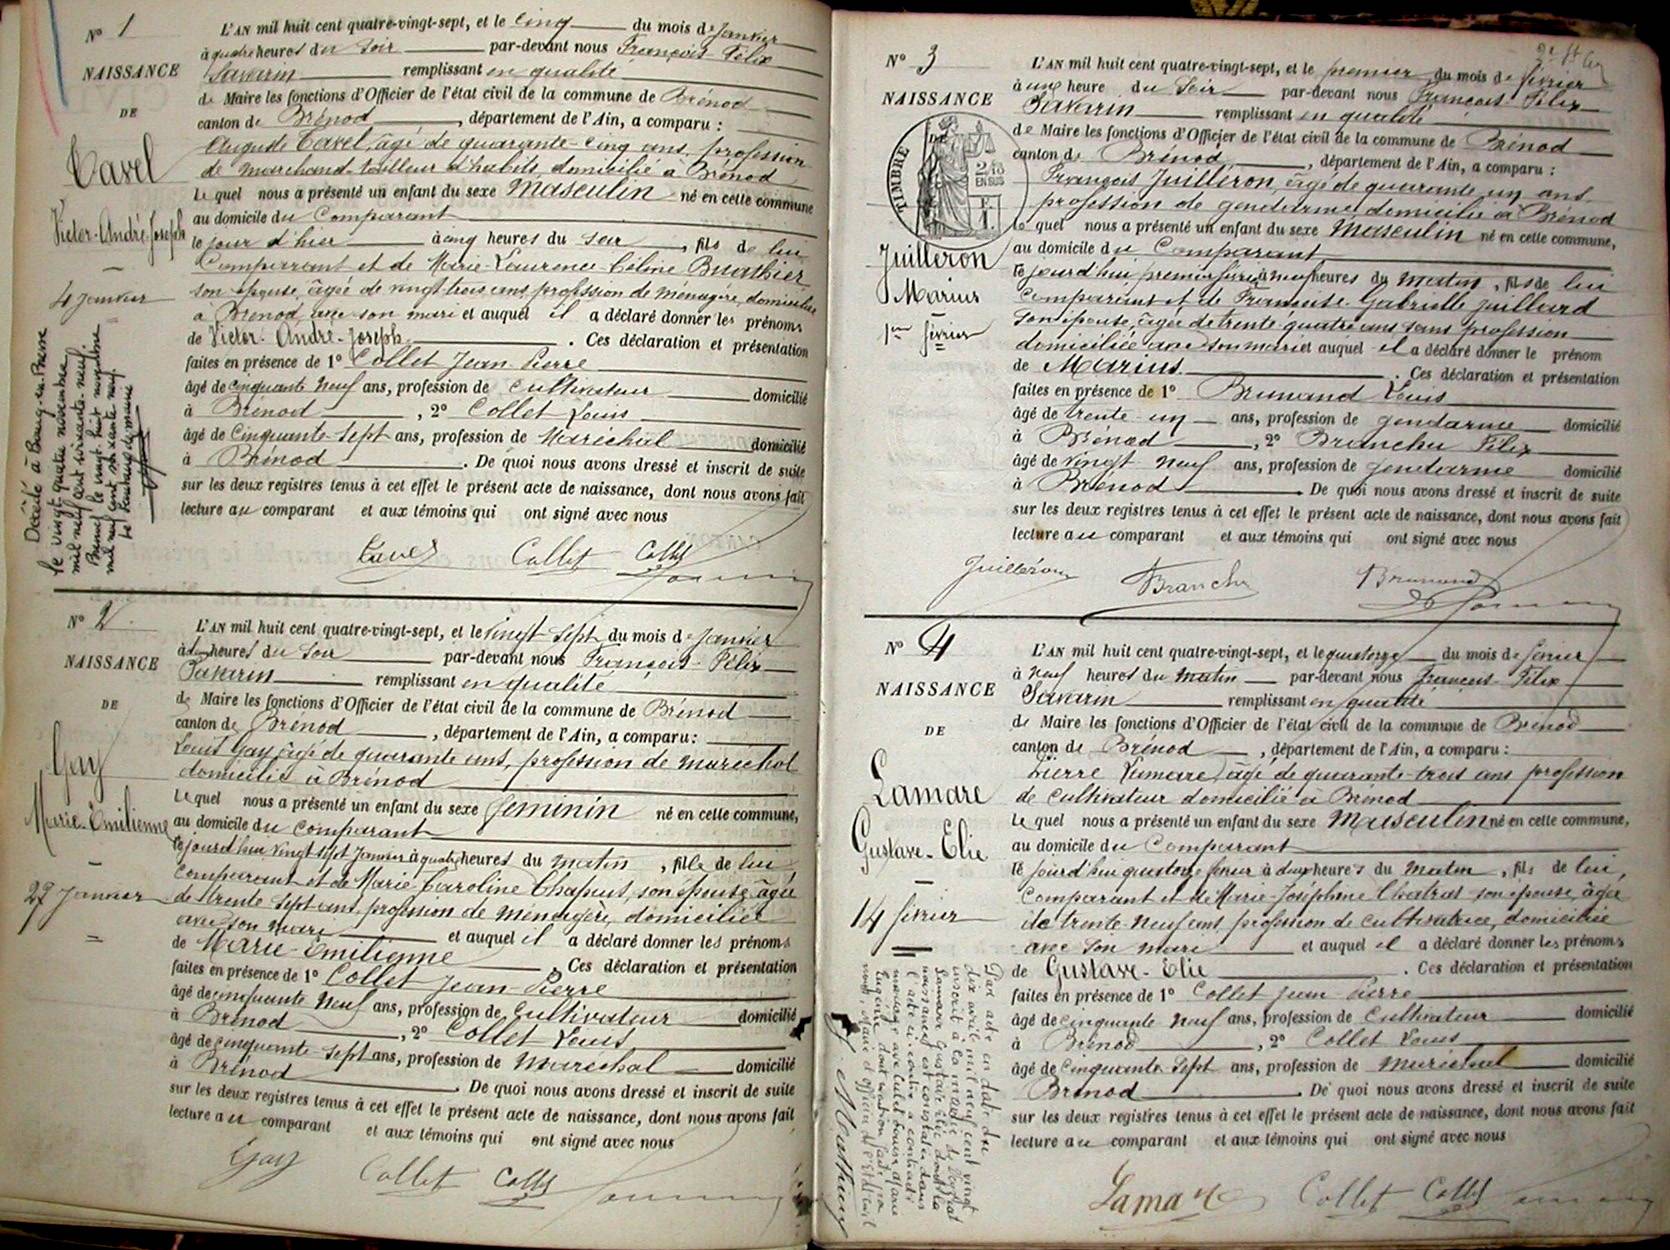 N° 1
NAISSANCE
DE
Tavel
Victor-André-Joseph
4 Janvier
Décédé à Bourg-en-Bresse
le vingt-quatre novembre
mil neuf cent soixante-neuf.
mil neuf cent soixante neuf
L'AN mil huit cent quatre-vingt-sept, et le cinq du mois de Janvier
à quatre heures du soir par-devant nous François Félix
Savarin remplissant en qualité
de Maire les fonctions d'Officier de l'état civil de la commune de Brénod
canton de Brénod, département de l'Ain, a comparu :
Auguste Tavel, âgé de quarante-cinq ans, profession
de marchand tailleur d'habits, domicilié à Brénod
Lequel nous a présenté un enfant du sexe Masculin né en cette commune
au domicile du Comparant
le jour d'hier à cinq heures du soir, fils de lui
Comparant et de Marie-Laurence-Céline Buathier
son épouse, âgée de vingt trois ans, profession de ménagère, domiciliée
à Brénod, avec son mari et auquel il a déclaré donner les prénoms
de Victor-André-Joseph. Ces déclaration et présentation
faites en présence de 1° Collet Jean Pierre
âgé de cinquante neuf ans, profession de cultivateur domicilié
à Brénod, 2° Collet Louis
âgé de Cinquante-sept ans, profession de Maréchal domicilié
à Brénod. De quoi nous avons dressé et inscrit de suite
sur les deux registres tenus à cet effet le présent acte de naissance, dont nous avons fait
lecture au comparant et aux témoins qui ont signé avec nous
Tavel Collet Collet
N° 2
NAISSANCE
DE
Gay
Marie-Emilienne
27 Janvier
L'AN mil huit cent quatre-vingt-sept, et le vingt sept du mois de Janvier
heures du soir par-devant nous François-Félix
Savarin remplissant en qualité
de Maire les fonctions d'Officier de l'état civil de la commune de Brénod
canton de Brénod, département de l'Ain, a comparu :
Louis Gay, âgé de quarante ans, profession de maréchal
domicilié à Brénod
Lequel nous a présenté un enfant du sexe féminin né en cette commune,
au domicile du comparant
le jourd'hui vingt sept Janvier à quatre heures du matin, fille de lui
comparant et de Marie Caroline Chapuis, son épouse, âgée
de trente sept ans, profession de ménagère, domiciliée
avec son mari et auquel il a déclaré donner les prénoms
de Marie-Emilienne. Ces déclaration et présentation
faites en présence de 1° Collet Jean-Pierre
âgé de cinquante neuf ans, profession de Cultivateur domicilié
à Brénod, 2° Collet Louis
âgé de cinquante-sept ans, profession de Maréchal domicilié
à Brénod. De quoi nous avons dressé et inscrit de suite
sur les deux registres tenus à cet effet le présent acte de naissance, dont nous avons fait
lecture au comparant et aux témoins qui ont signé avec nous
Gay Collet Collet
N° 3
NAISSANCE
DE
TIMBRE
EN SUS
Juilléron
Marius
1er février
L'AN mil huit cent quatre-vingt-sept, et le premier du mois de février
à une heure du soir par-devant nous François Félix
Savarin remplissant en qualité
de Maire les fonctions d'Officier de l'état civil de la commune de Brénod
canton de Brénod, département de l'Ain, a comparu :
François Juilléron, âgé de quarante un ans,
profession de gendarme, domicilié à Brénod
Lequel nous a présenté un enfant du sexe Masculin né en cette commune,
au domicile du Comparant
le jourd'hui premier février à neuf heures du matin, fils de lui
comparant et de Françoise Gabrielle Juillard
son épouse, âgée de trente quatre ans sans profession
domiciliée avec son mari et auquel il a déclaré donner le prénom
de Marius. Ces déclaration et présentation
faites en présence de 1° Brunand Louis
âgé de trente-un ans, profession de gendarme domicilié
à Brénod, 2° Branche Félix
âgé de vingt-neuf ans, profession de gendarme domicilié
à Brénod. De quoi nous avons dressé et inscrit de suite
sur les deux registres tenus à cet effet le présent acte de naissance, dont nous avons fait
lecture au comparant et aux témoins qui ont signé avec nous
Juilléron Branche Brunand
N° 4
NAISSANCE
DE
Lamare
Gustave-Elie
14 février
L'AN mil huit cent quatre-vingt-sept, et le quatorze du mois de février
à neuf heures du matin par-devant nous François Félix
Savarin remplissant en qualité
de Maire les fonctions d'Officier de l'état civil de la commune de Brénod
canton de Brénod, département de l'Ain, a comparu :
Pierre Lamare, âgé de quarante-trois ans profession
de cultivateur domicilié à Brénod
Lequel nous a présenté un enfant du sexe Masculin né en cette commune,
au domicile du Comparant
le jourd'hui quatorze février à deux heures du matin, fils de lui,
Comparant et de Marie-Joséphine Chatras son épouse, âgée
de trente-neuf ans, profession de cultivatrice, domiciliée
avec son mari et auquel il a déclaré donner les prénoms
de Gustave-Elie. Ces déclaration et présentation
faites en présence de 1° Collet Jean-Pierre
âgé de cinquante neuf ans, profession de Cultivateur domicilié
à Brénod, 2° Collet Louis
âgé de Cinquante Sept ans, profession de Maréchal domicilié
Brénod. De quoi nous avons dressé et inscrit de suite
sur les deux registres tenus à cet effet le présent acte de naissance, dont nous avons fait
lecture au comparant et aux témoins qui ont signé avec nous
Lamare Collet Collet